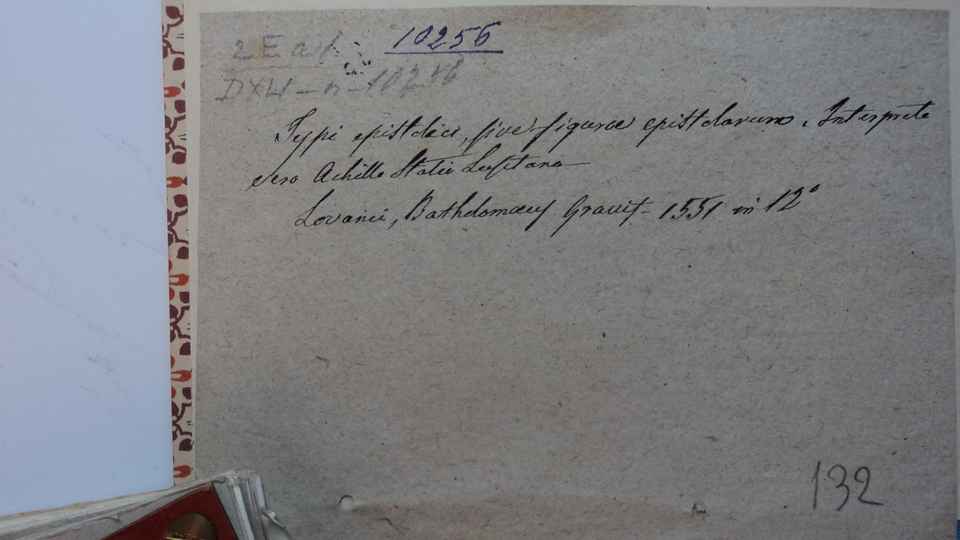 10256
DXLI - n - 10256
Typi epistolici, sive figurae epistolarum. Interprete
vero Achille Statio Lusitano
Lovanii, Bartholomaeus Gravius - 1551 in 12°
132